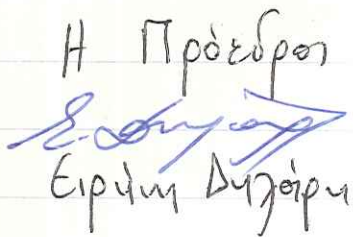 Η Πρόεδρος
Ειρήνη Δηλάρη